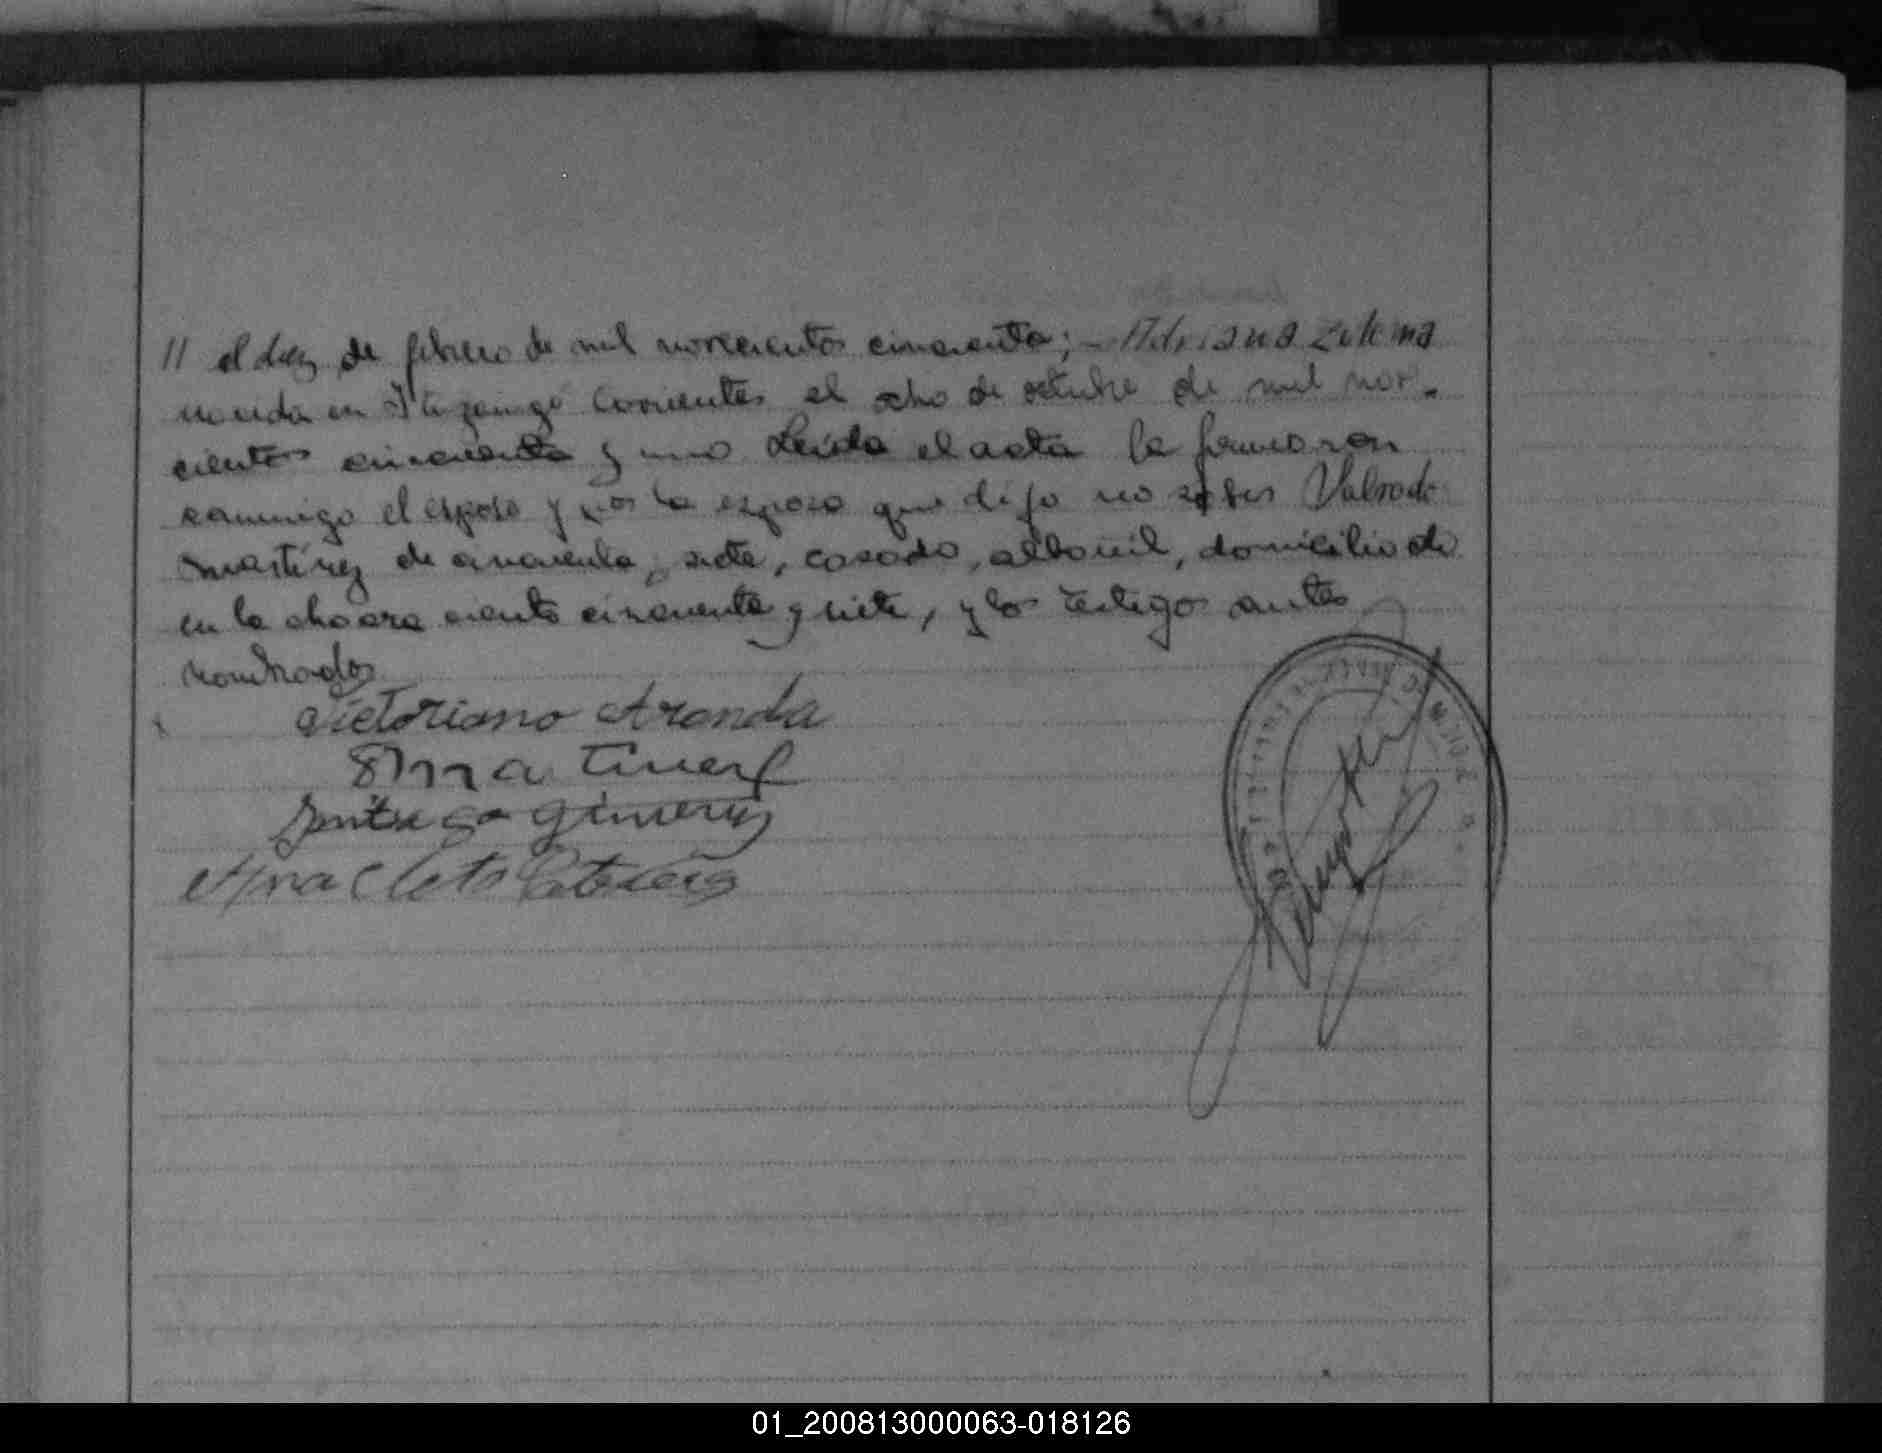 // el diez de febrero de mil novecientos cincuenta; - Adriana Zulema
nacida en Ituzaingó Corrientes el ocho de octubre de mil nove-
cientos cincuenta y uno Leída el acta la firmaron
conmigo el esposo y por la esposa que dijo no saber
Martínez de cincuenta y siete, casado, albañil, domiciliado
en la chacra ciento cincuenta y siete, y los testigos antes
nombrados
Victoriano Aranda
Santiago Gimenez
01_200813000063-018126